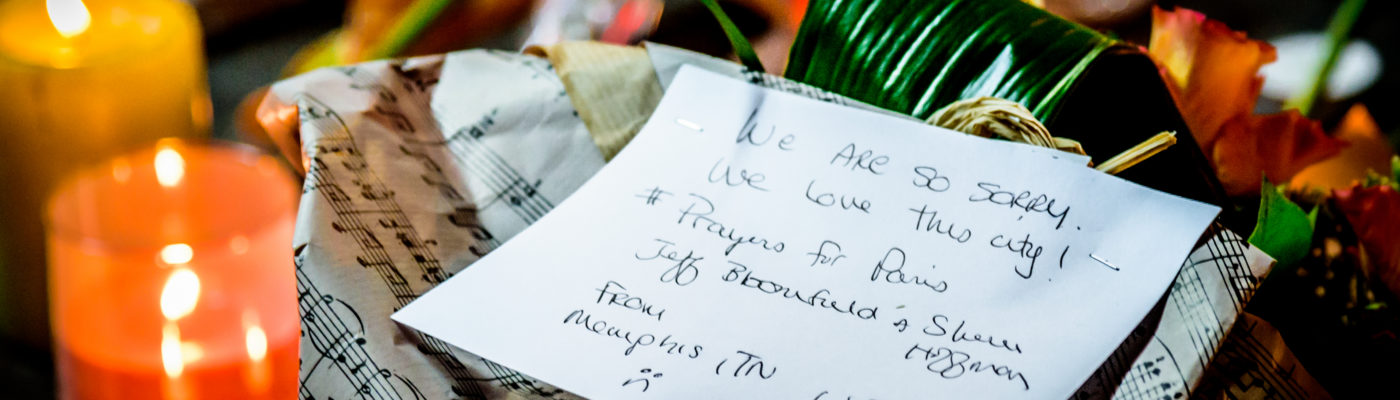 We ARE SO SORRY.
We love this city!
# Prayers for Paris
Jeff Bloomfield & Sherri
Hoffman
From
Memphis, TN